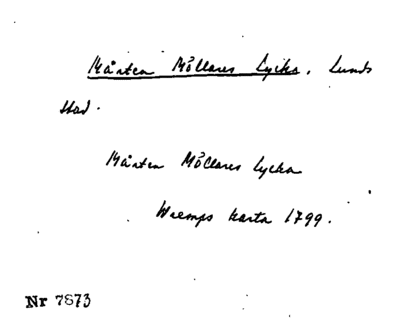 Mårten Möllares Lycka. Lunds
stad.
Mårten Möllares lycka
Waemps karta 1799.
Nr 7873